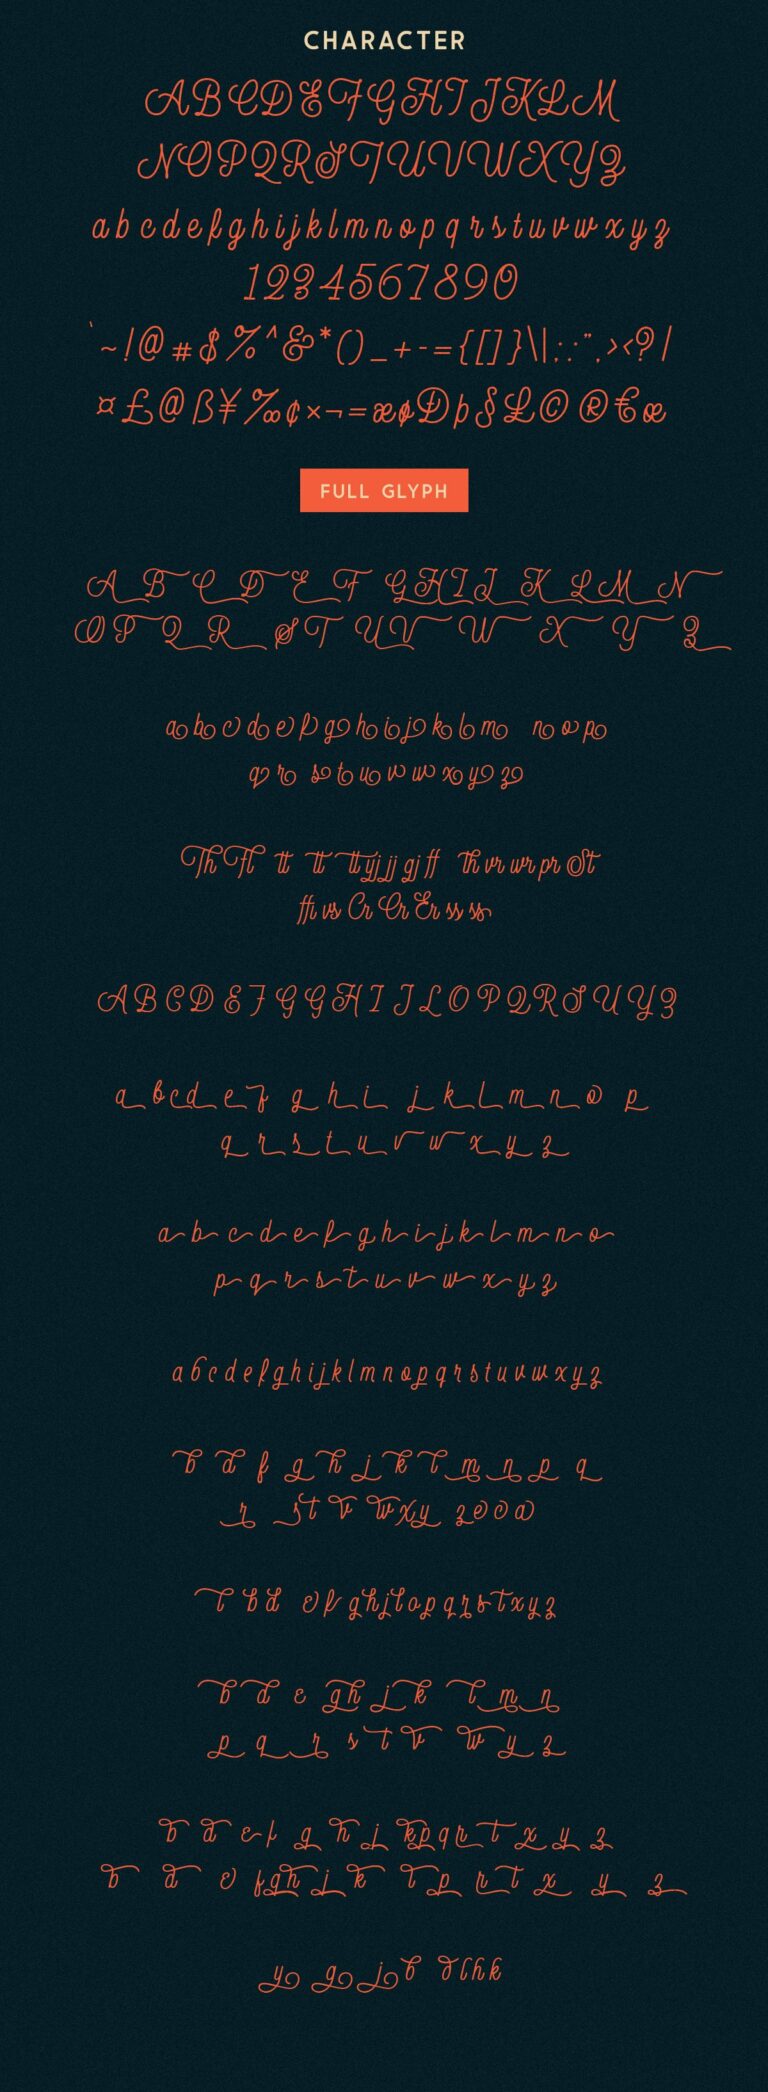 CHARACTER
ABCDEFGHIJKLM
NOPQRSTUVWXYZ
abcdefghijklmnopqrstuvwxyz
1234567890
`~!@#$%^&*()_+-={[]}\|:;",><?/
¤£@ß¥‰¢×¬=æøÐþ§£©®€œ
FULL GLYPH
A B C D E F G H I J K L M N
O P Q R S T U V W X Y Z
a b c d e f g h i j k l m n o p
q r s t u v w x y z
Th Fl tt tt tt yj jj gj ff th vr wr pr St
ffi vs Cr Cr Er ss ss
A B C D E F G G H I J L O P Q R S U Y Z
a b c d e f g h i j k l m n o p
q r s t u v w x y z
a b c d e f g h i j k l m n o
p q r s t u v w x y z
a b c d e f g h i j k l m n o p q r s t u v w x y z
b d f g h j k l m n p q
r s t v w x y z e o o a
l b d e f g h j l o p q r s t x y z
b d e g h j k l m n
p q r s t v w y z
b d e f g h j k p q r t x y z
b d e f g h j k l p r t x y z
y g j b d l h k